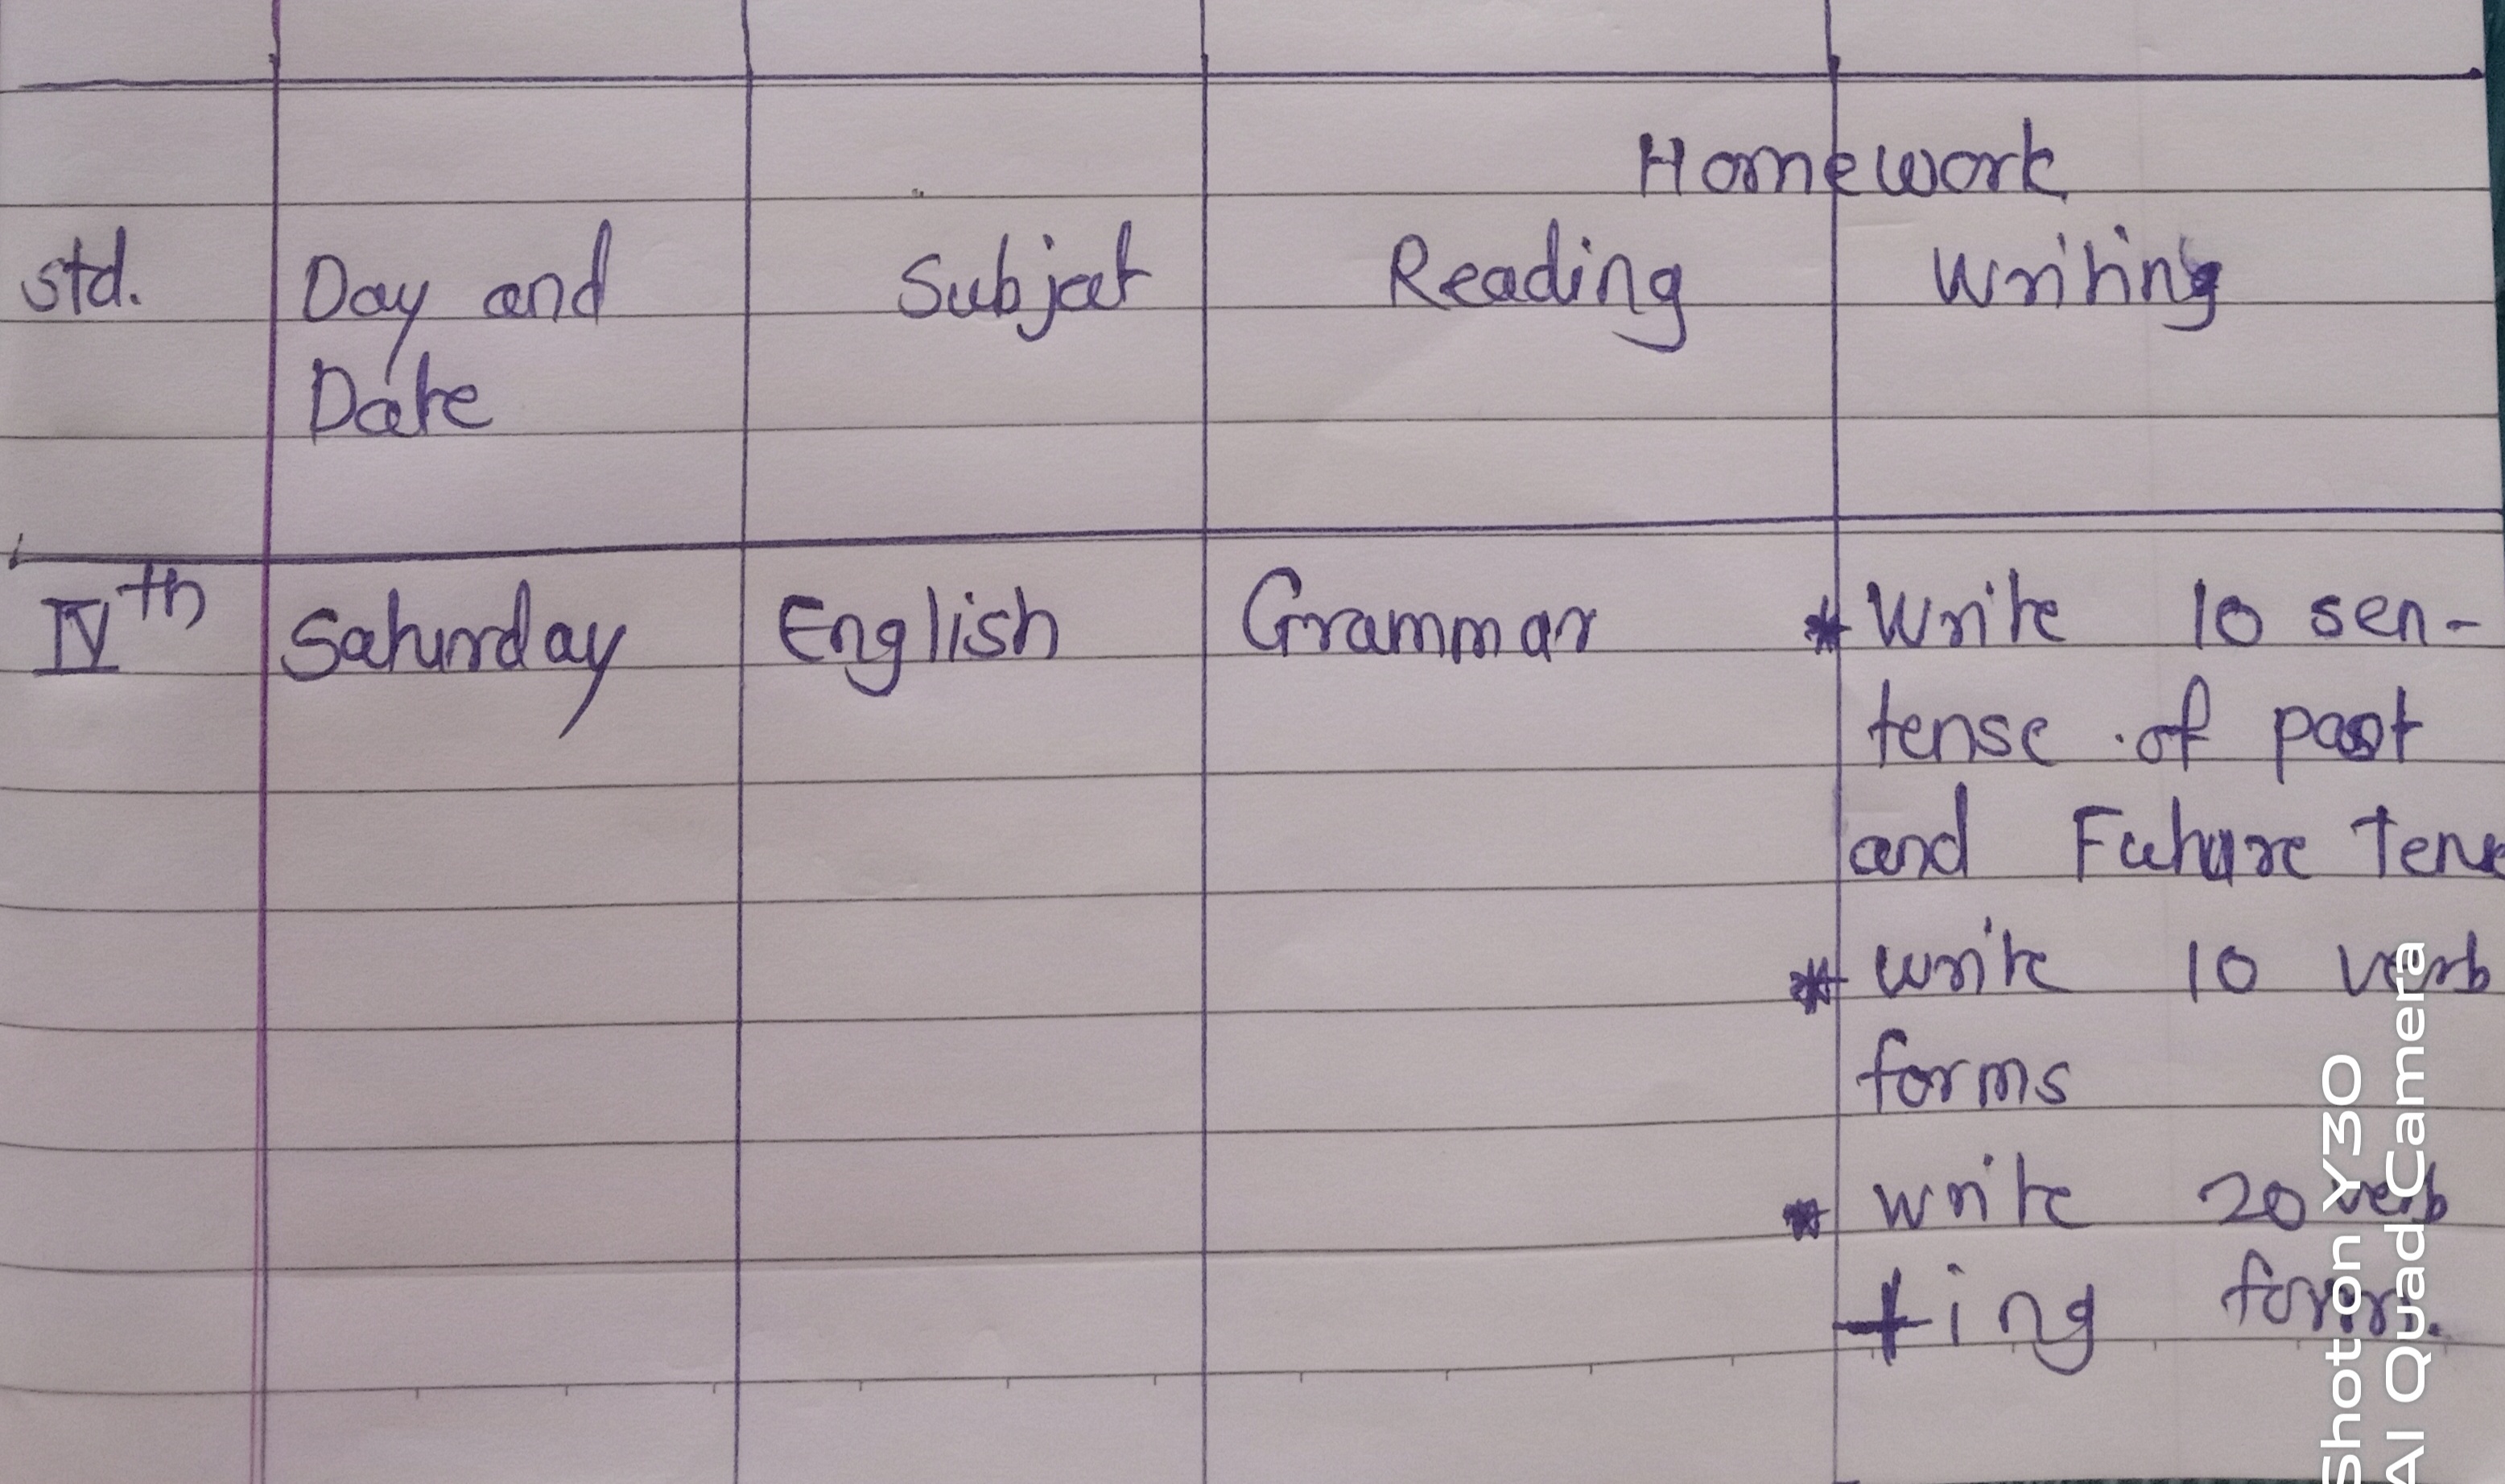 Homework
std. Day and Subject Reading Writing
Date
IVth Saturday English Grammar * Write 10 sen-
tense of past
and Future Tense
* write 10 verb
forms
* write 20 verb
+ing form.
Shot on Y30
AI Quad Camera